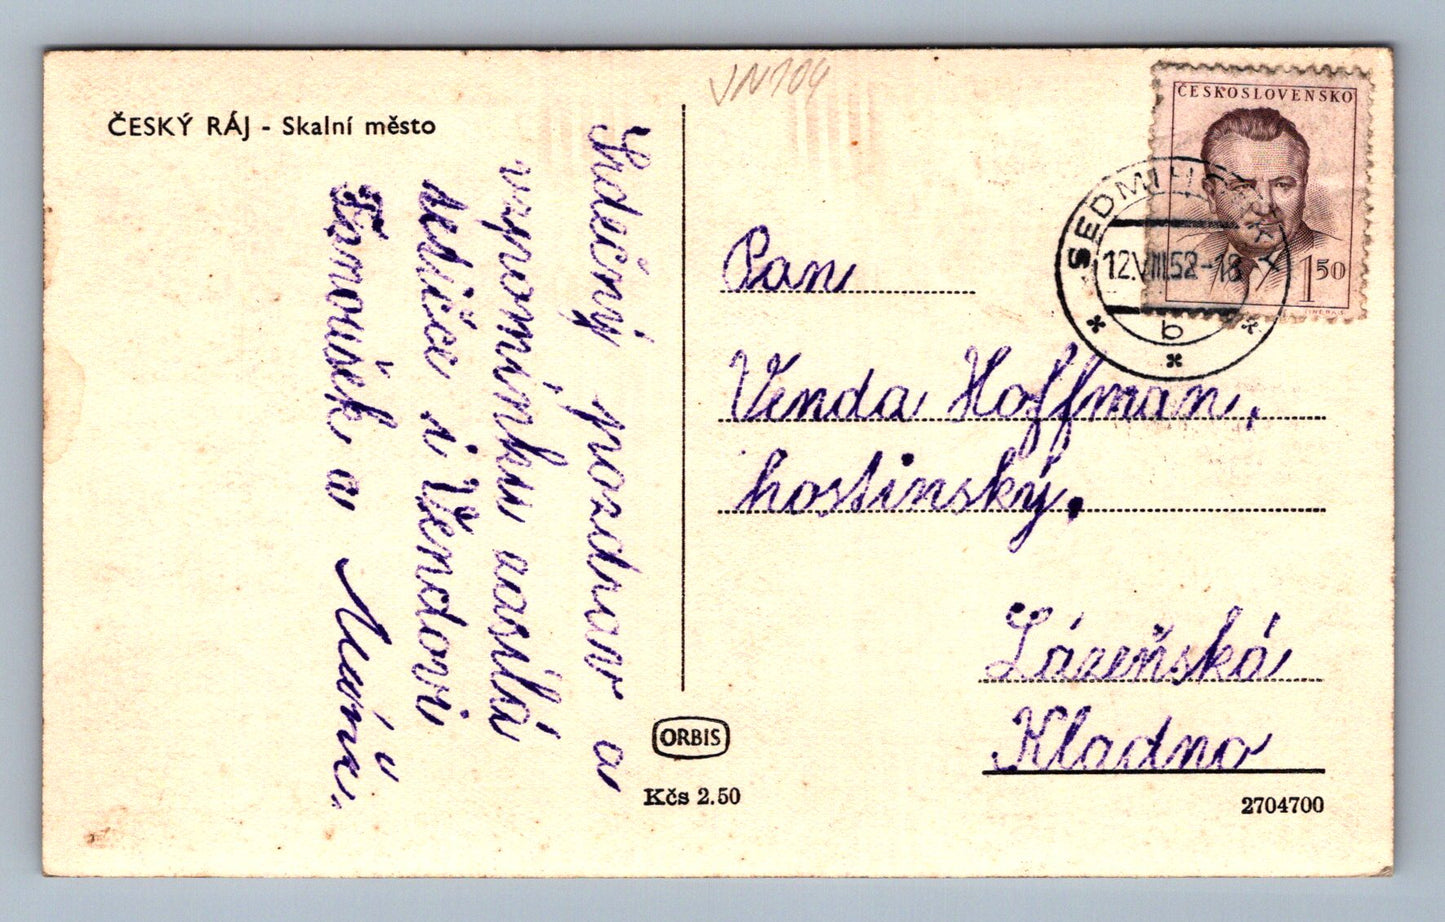 VN104
ČESKÝ RÁJ - Skalní město
Srdečný pozdrav a
vzpomínku zasílá
detičce i Vendovi
Fanoušek a Máňa.
ORBIS
Kčs 2.50
ČESKOSLOVENSKO
1 50
SEDMIHORKY
12.VIII.52-18
b
Pan
Venda Hoffman,
hostinský.
Lázeňská
Kladno
2704700